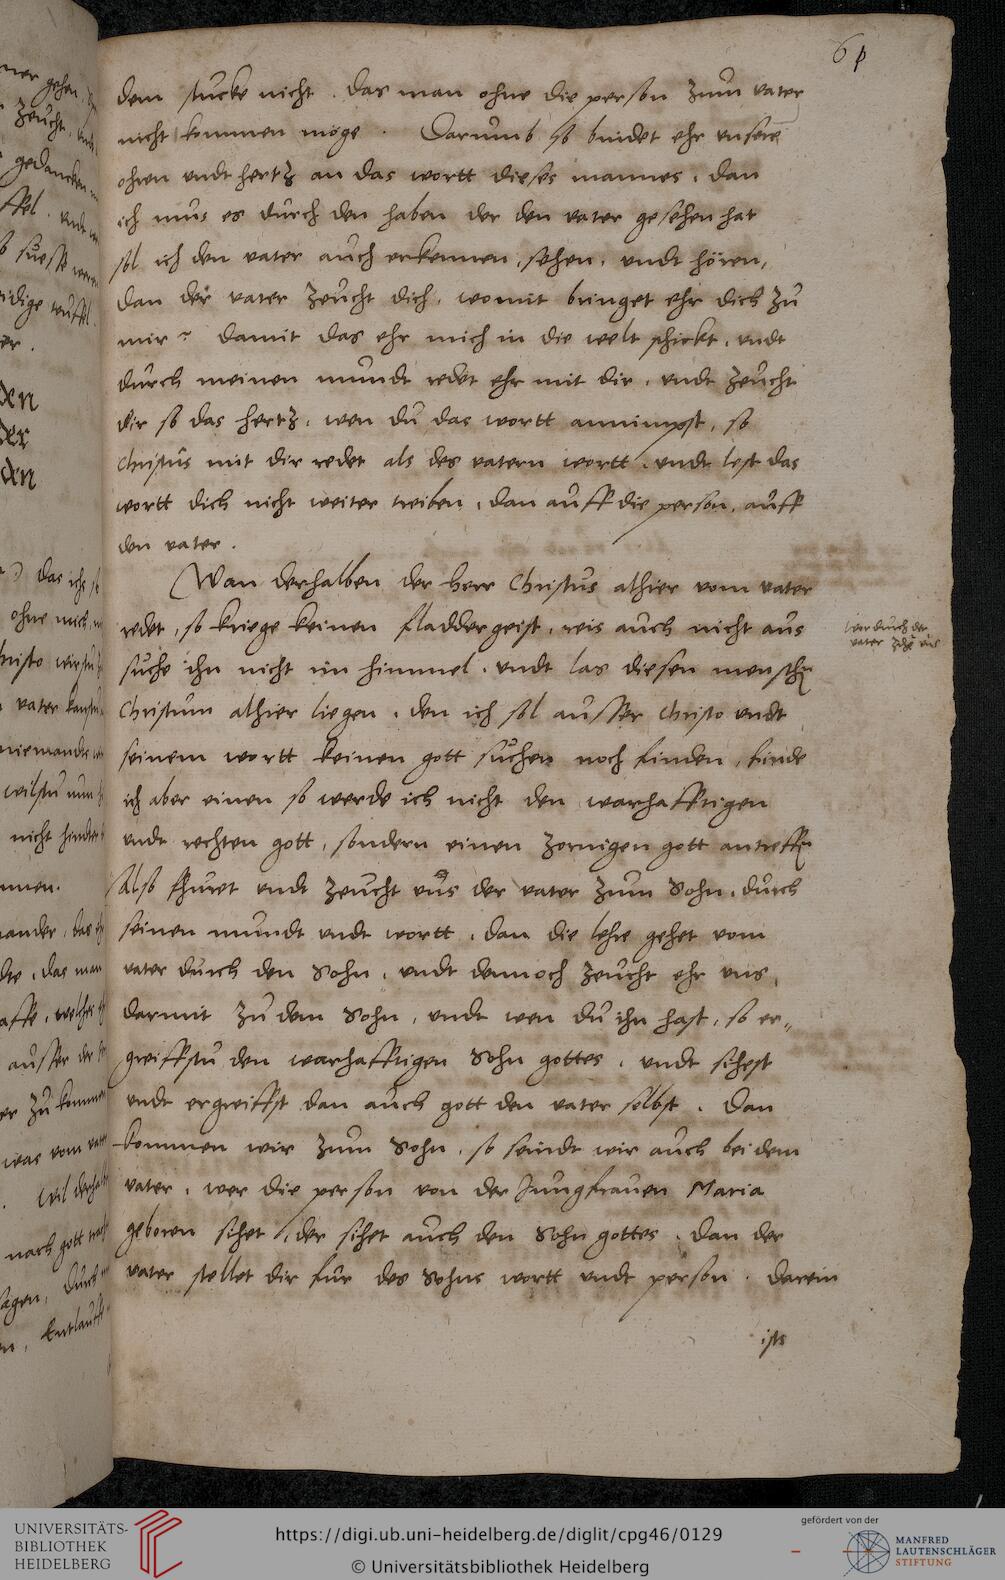 61
dem stucke nicht. das man ohne die person zum vater
nicht kommen möge. Darumb so bindet ehr unsere
ohren undt hertz an das wortt dieses mannes. dan
ich mus es durch den haben der den vater gesehen hat
sol ich den vater auch erkennen, sehen, undt hören,
dan der vater zeucht dich. womit bringet ehr dich zu
mir? damit das ehr mich in die welt schickt. undt
durch meinen mundt redet ehr mit dir. undt zeucht
dir so das hertz. wen du das wortt annimpst, so
Christus mit dir redet als des vatern wortt. undt lest das
wortt dich nicht weiter treiben, dan auff die person, auff
den vater.
Wan derhalben der herr Christus alhier vom vater
redet, so kriege keinen fladdergeist, reis auch nicht aus
suche ihn nicht im himmel. undt las diesen menschen
Christum alhier liegen. den ich sol ausser Christo undt
seinem wortt keinen gott suchen noch finden, finde
ich aber einen so werde ich nicht den warhafftigen
undt rechten gott, sondern einen zornigen gott antreffen
Also fhuret undt zeucht uns der vater zum Sohn. durch
seinen mundt undt wortt. dan die lehre gehet vom
vater durch den Sohn. undt dennoch zeucht ehr uns,
darmit zu dem Sohn, undt wen du ihn hast, so er-
greiffstu den warhafftigen Sohn gottes. undt sihest
undt ergreiffst dan auch gott den vater selbst. Dan
kommen wir zum Sohn, so seindt wir auch bei dem
vater. wer die person von der Jungfrauen Maria
geboren sihet, der sihet auch den Sohn gottes. dan der
vater stellet dir fur des Sohns wortt undt person. darein
ists
wordurch der
vater zihe uns
UNIVERSITÄTS-
BIBLIOTHEK
HEIDELBERG
https://digi.ub.uni-heidelberg.de/diglit/cpg46/0129
© Universitätsbibliothek Heidelberg
gefördert von der
MANFRED
LAUTENSCHLÄGER
STIFTUNG